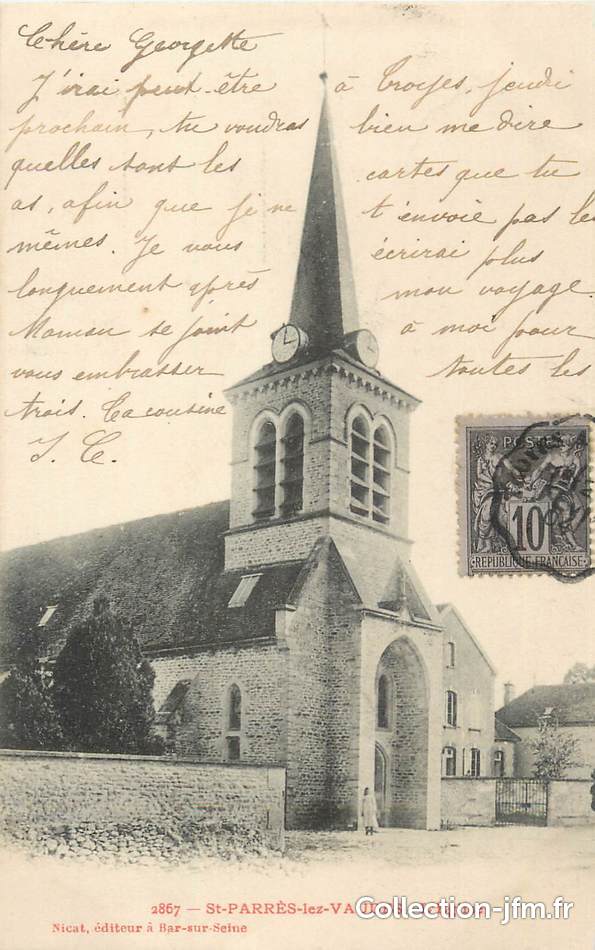 Chère Georgette
J'irai peut-être à Troyes, jeudi
prochain, tu voudras bien me dire
quelles sont les cartes que tu
as, afin que je ne t'envoie pas les
mêmes. Je vous écrirai plus
longuement après mon voyage,
Maman se joint à moi pour
vous embrasser toutes les
trois. Ta cousine
J. C.
POSTES
10
REPUBLIQUE FRANÇAISE
2867 — St-PARRÈS-lez-VAUDES
Collection-jfm.fr
Nicat, éditeur à Bar-sur-Seine